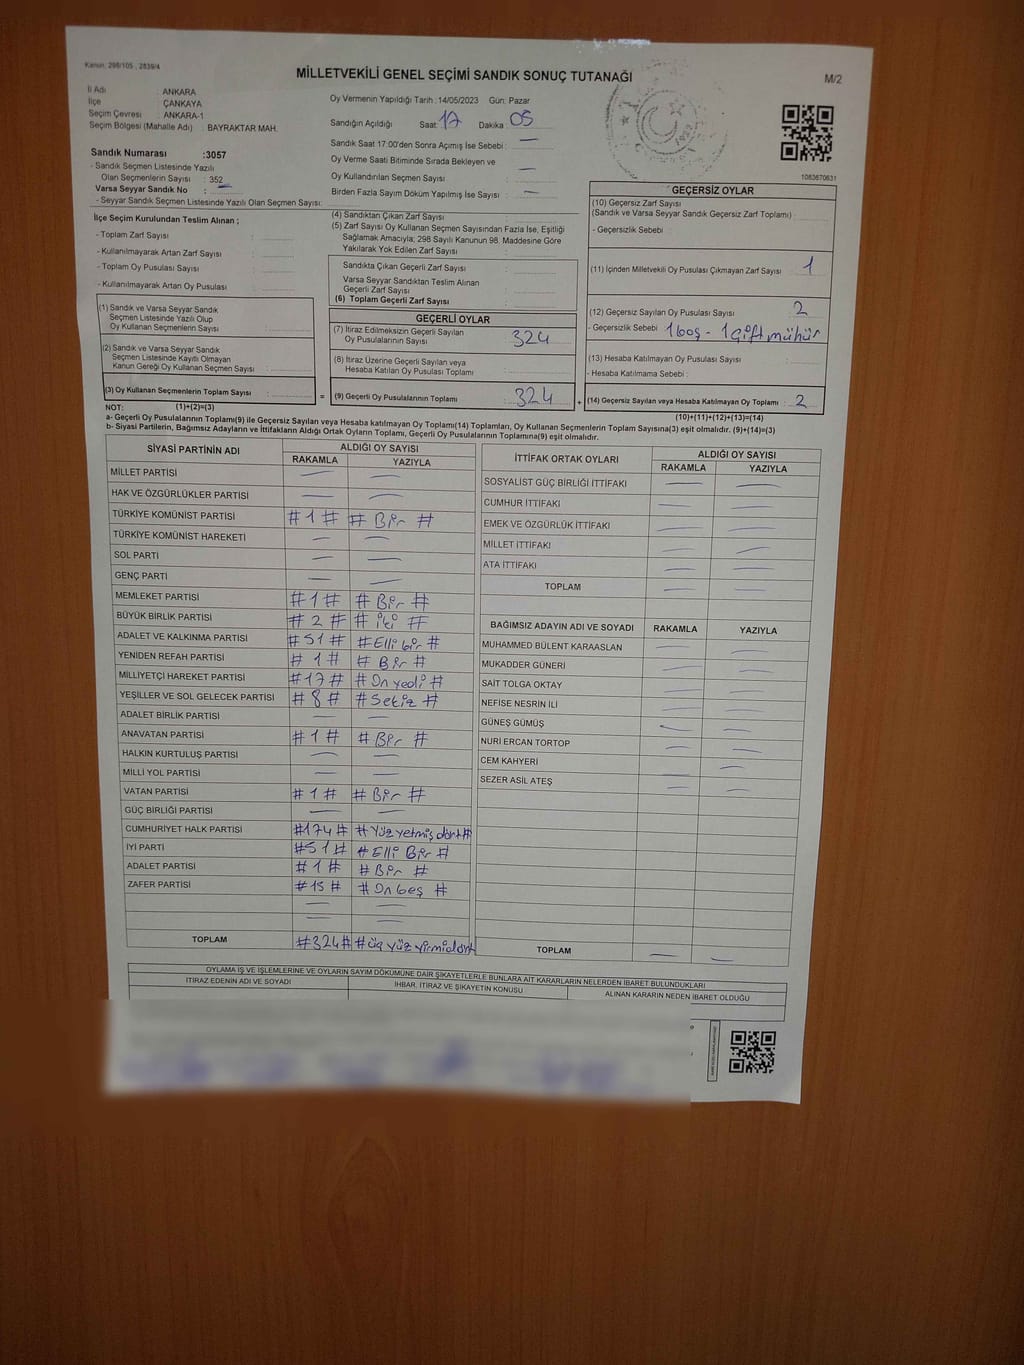 Kanun, 298/105 , 2839/4
MİLLETVEKİLİ GENEL SEÇİMİ SANDIK SONUÇ TUTANAĞI
M/2
İl Adı : ANKARA
İlçe : ÇANKAYA
Seçim Çevresi : ANKARA-1
Seçim Bölgesi (Mahalle Adı) : BAYRAKTAR MAH.
Sandık Numarası :3057
- Sandık Seçmen Listesinde Yazılı
Olan Seçmenlerin Sayısı : 352
Varsa Seyyar Sandık No : —
- Seyyar Sandık Seçmen Listesinde Yazılı Olan Seçmen Sayısı:
Oy Vermenin Yapıldığı Tarih :14/05/2023 Gün: Pazar
Sandığın Açıldığı Saat: 17 Dakika: 05
Sandık Saat 17:00'den Sonra Açımış İse Sebebi : —
Oy Verme Saati Bitiminde Sırada Bekleyen ve
Oy Kullandırılan Seçmen Sayısı : —
Birden Fazla Sayım Döküm Yapılmış İse Sayısı : —
1083670631
İlçe Seçim Kurulundan Teslim Alınan ;
- Toplam Zarf Sayısı :
- Kullanılmayarak Artan Zarf Sayısı :
- Toplam Oy Pusulası Sayısı :
- Kullanılmayarak Artan Oy Pusulası :
(1) Sandık ve Varsa Seyyar Sandık
Seçmen Listesinde Yazılı Olup
Oy Kullanan Seçmenlerin Sayısı :
(2) Sandık ve Varsa Seyyar Sandık
Seçmen Listesinde Kayıtlı Olmayan
Kanun Gereği Oy Kullanan Seçmen Sayısı :
(3) Oy Kullanan Seçmenlerin Toplam Sayısı :
(4) Sandıktan Çıkan Zarf Sayısı :
(5) Zarf Sayısı Oy Kullanan Seçmen Sayısından Fazla İse, Eşitliği
Sağlamak Amacıyla; 298 Sayılı Kanunun 98. Maddesine Göre
Yakılarak Yok Edilen Zarf Sayısı :
Sandıkta Çıkan Geçerli Zarf Sayısı :
Varsa Seyyar Sandıktan Teslim Alınan
Geçerli Zarf Sayısı :
(6) Toplam Geçerli Zarf Sayısı :
GEÇERLİ OYLAR
(7) İtiraz Edilmeksizin Geçerli Sayılan
Oy Pusulalarının Sayısı : 324
(8) İtiraz Üzerine Geçerli Sayılan veya
Hesaba Katılan Oy Pusulası Toplamı :
= (9) Geçerli Oy Pusulalarının Toplamı : 324 +
GEÇERSİZ OYLAR
(10) Geçersiz Zarf Sayısı
(Sandık ve Varsa Seyyar Sandık Geçersiz Zarf Toplamı) :
- Geçersizlik Sebebi :
(11) İçinden Milletvekili Oy Pusulası Çıkmayan Zarf Sayısı : 1
(12) Geçersiz Sayılan Oy Pusulası Sayısı : 2
- Geçersizlik Sebebi : 1 boş - 1 çift mühür
(13) Hesaba Katılmayan Oy Pusulası Sayısı :
- Hesaba Katılmama Sebebi :
(14) Geçersiz Sayılan veya Hesaba Katılmayan Oy Toplamı : 2
NOT: (1)+(2)=(3) (10)+(11)+(12)+(13)=(14)
a- Geçerli Oy Pusulalarının Toplamı(9) ile Geçersiz Sayılan veya Hesaba Katılmayan Oy Toplamı(14) Toplamları, Oy Kullanan Seçmenlerin Toplam Sayısına(3) eşit olmalıdır. (9)+(14)=(3)
b- Siyasi Partilerin, Bağımsız Adayların ve İttifakların Aldığı Ortak Oyların Toplamı, Geçerli Oy Pusulalarının Toplamına(9) eşit olmalıdır.
SİYASİ PARTİNİN ADI ALDIĞI OY SAYISI
RAKAMLA YAZIYLA
MİLLET PARTİSİ — —
HAK VE ÖZGÜRLÜKLER PARTİSİ — —
TÜRKİYE KOMÜNİST PARTİSİ #1# # Bir #
TÜRKİYE KOMÜNİST HAREKETİ — —
SOL PARTİ — —
GENÇ PARTİ — —
MEMLEKET PARTİSİ #1# # Bir #
BÜYÜK BİRLİK PARTİSİ # 2 # # iki #
ADALET VE KALKINMA PARTİSİ #51 # #Elli bir #
YENİDEN REFAH PARTİSİ # 1# # Bir #
MİLLİYETÇİ HAREKET PARTİSİ #17# #On yedi #
YEŞİLLER VE SOL GELECEK PARTİSİ # 8 # #Sekiz #
ADALET BİRLİK PARTİSİ — —
ANAVATAN PARTİSİ # 1 # # Bir #
HALKIN KURTULUŞ PARTİSİ — —
MİLLİ YOL PARTİSİ — —
VATAN PARTİSİ # 1 # # Bir #
GÜÇ BİRLİĞİ PARTİSİ — —
CUMHURİYET HALK PARTİSİ #174 # # Yüz yetmiş dört#
İYİ PARTİ #51# #Elli Bir #
ADALET PARTİSİ # 1 # #Bir #
ZAFER PARTİSİ # 15 # #On beş #
— —
— —
TOPLAM #324# #üç yüz yirmidört
İTTİFAK ORTAK OYLARI ALDIĞI OY SAYISI
RAKAMLA YAZIYLA
SOSYALİST GÜÇ BİRLİĞİ İTTİFAKI — —
CUMHUR İTTİFAKI — —
EMEK VE ÖZGÜRLÜK İTTİFAKI — —
MİLLET İTTİFAKI — —
ATA İTTİFAKI — —
TOPLAM — —
BAĞIMSIZ ADAYIN ADI VE SOYADI RAKAMLA YAZIYLA
MUHAMMED BÜLENT KARAASLAN — —
MUKADDER GÜNERİ — —
SAİT TOLGA OKTAY — —
NEFİSE NESRİN İLİ — —
GÜNEŞ GÜMÜŞ — —
NURİ ERCAN TORTOP — —
CEM KAHYERİ — —
SEZER ASİL ATEŞ — —
TOPLAM — —
OYLAMA İŞ VE İŞLEMLERİNE VE OYLARIN SAYIM DÖKÜMÜNE DAİR ŞİKAYETLERLE BUNLARA AİT KARARLARIN NELERDEN İBARET BULUNDUKLARI
İTİRAZ EDENİN ADI VE SOYADI İHBAR, İTİRAZ VE ŞİKAYETİN KONUSU ALINAN KARARIN NEDEN İBARET OLDUĞU